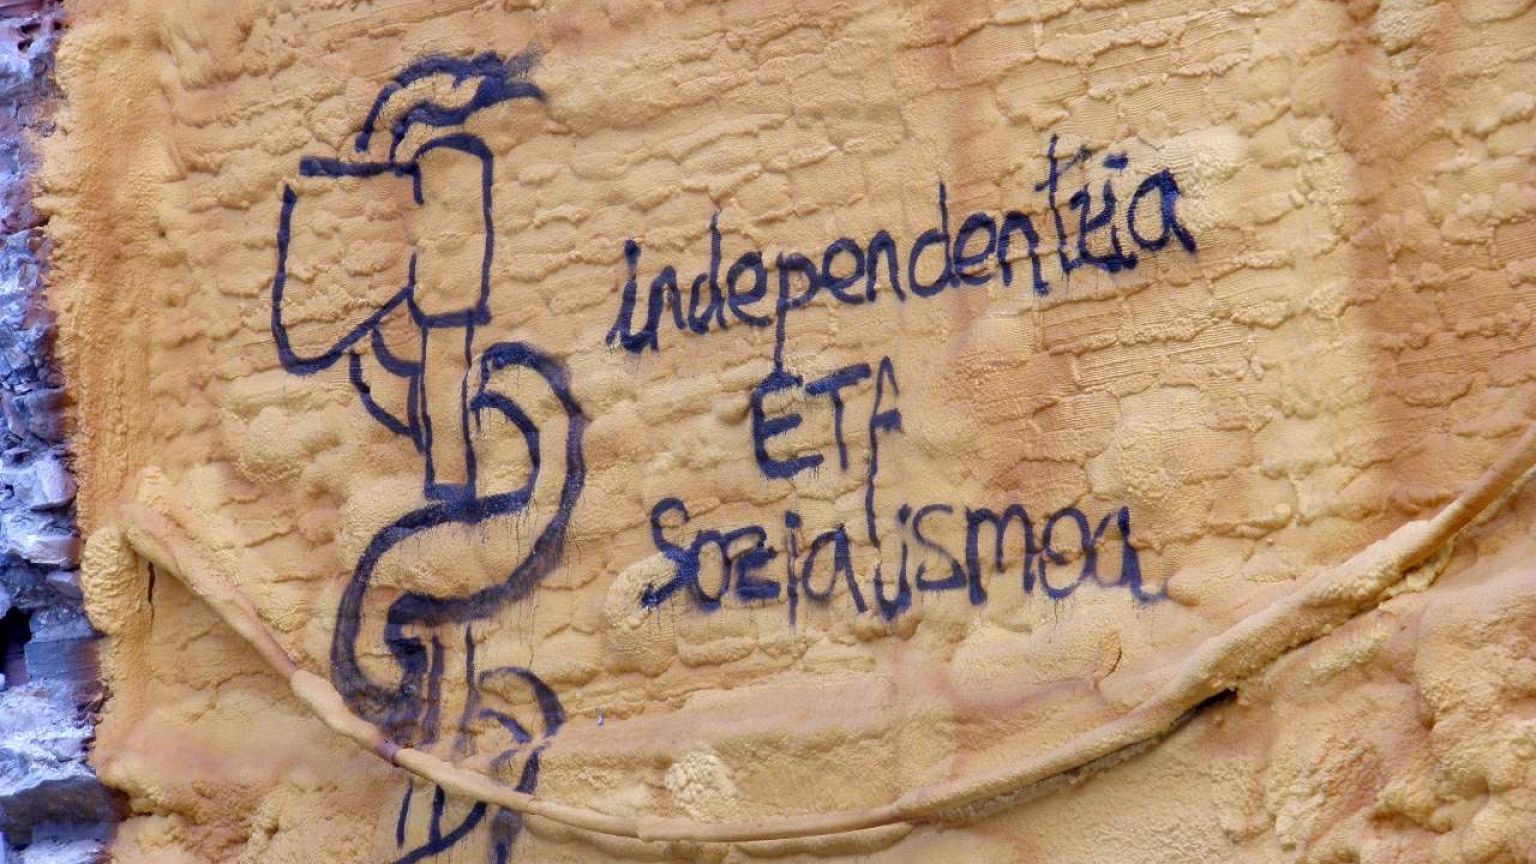 independentzia
ETA
Sozialismoa